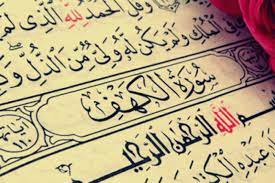 الْحَمْدُ لِلَّهِ الَّذِي لَمْ
الْمُلْكِ وَلَمْ يَكُن لَّهُ وَلِيٌّ مِّنَ الذُّلِّ
سُورَةُ الْكَهْفِ
اللَّهِ الرَّحْمَٰنِ الرَّحِيمِ
عَبْدِهِ الْكِتَابَ